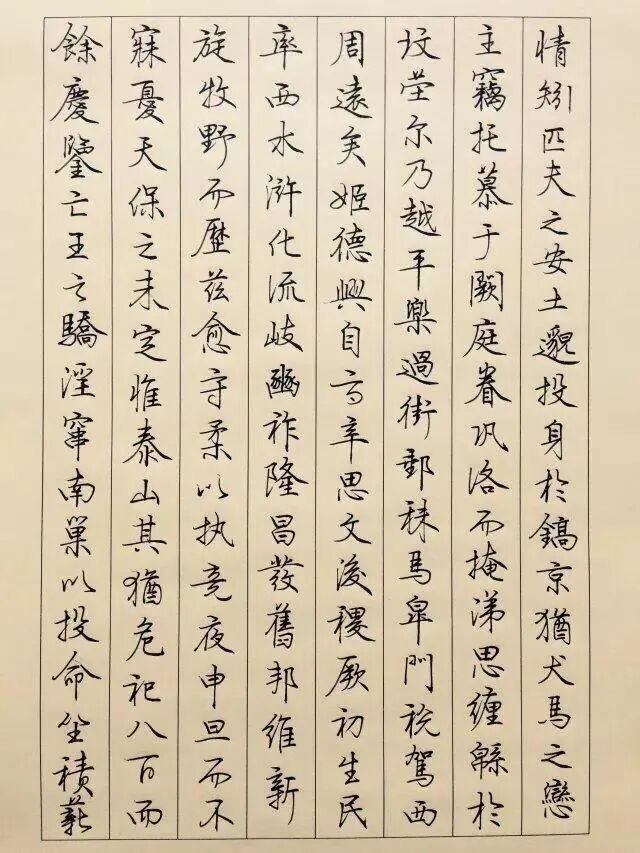 情矧匹夫之安土邈投身於鎬京猶犬馬之戀
主竊托慕于闕庭眷巩洛而掩涕思缠緜於
坟茔尔乃越平樂過街郵秣馬皐門税駕西
周遠矣姬德興自高辛思文後稷厥初生民
率西水滸化流岐豳祚隆昌發舊邦維新
旋牧野而歷兹愈守柔以执竞夜申旦而不
寐憂天保之未定惟泰山其猶危祀八百而
餘慶鑒亡王之驕淫竄南巢以投命坐積薪